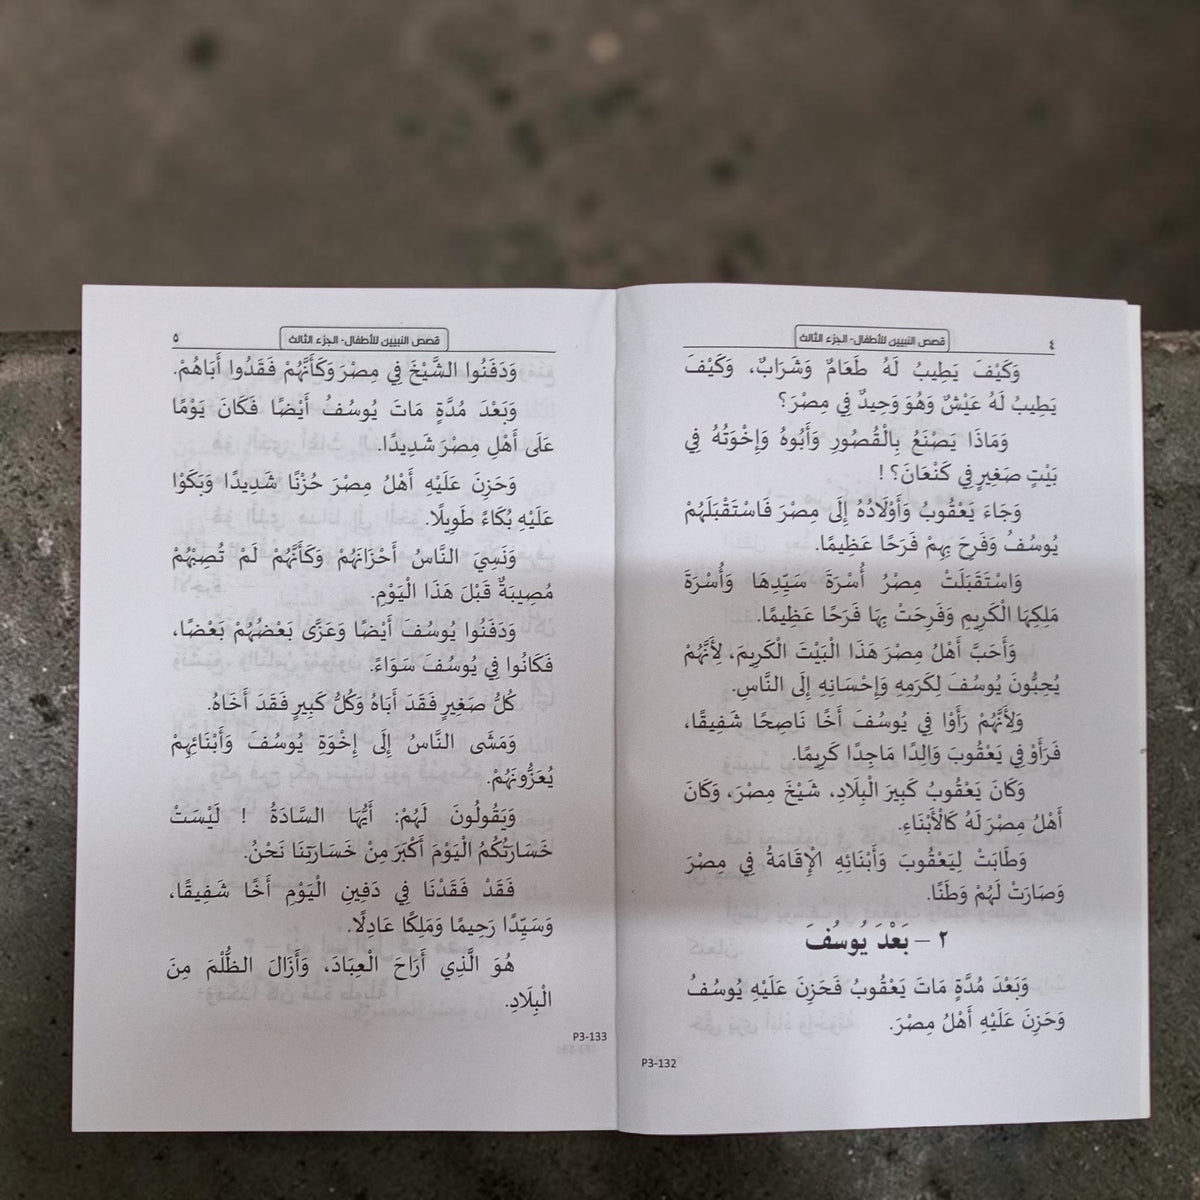 قصص النبيين للأطفال- الجزء الثالث
٤
وَكَيْفَ يَطِيبُ لَهُ طَعَامٌ وَشَرَابٌ، وَكَيْفَ
يَطِيبُ لَهُ عَيْشٌ وَهُوَ وَحِيدٌ فِي مِصْرَ؟
وَمَاذَا يَصْنَعُ بِالْقُصُورِ وَأَبُوهُ وَإِخْوَتُهُ فِي
بَيْتٍ صَغِيرٍ فِي كَنْعَانَ؟ !
وَجَاءَ يَعْقُوبُ وَأَوْلَادُهُ إِلَى مِصْرَ فَاسْتَقْبَلَهُمْ
يُوسُفُ وَفَرِحَ بِهِمْ فَرَحًا عَظِيمًا.
وَاسْتَقْبَلَتْ مِصْرُ أُسْرَةَ سَيِّدِهَا وَأُسْرَةَ
مَلِكِهَا الْكَرِيمِ وَفَرِحَتْ بِهَا فَرَحًا عَظِيمًا.
وَأَحَبَّ أَهْلُ مِصْرَ هَذَا الْبَيْتَ الْكَرِيمَ، لِأَنَّهُمْ
يُحِبُّونَ يُوسُفَ لِكَرَمِهِ وَإِحْسَانِهِ إِلَى النَّاسِ.
وَلِأَنَّهُمْ رَأَوْا فِي يُوسُفَ أَخًا نَاصِحًا شَفِيقًا،
فَرَأَوْ فِي يَعْقُوبَ وَالِدًا مَاجِدًا كَرِيمًا.
وَكَانَ يَعْقُوبُ كَبِيرَ الْبِلَادِ، شَيْخَ مِصْرَ، وَكَانَ
أَهْلُ مِصْرَ لَهُ كَالْأَبْنَاءِ.
وَطَابَتْ لِيَعْقُوبَ وَأَبْنَائِهِ الْإِقَامَةُ فِي مِصْرَ
وَصَارَتْ لَهُمْ وَطَنًا.
٢ – بَعْدَ يُوسُفَ
وَبَعْدَ مُدَّةٍ مَاتَ يَعْقُوبُ فَحَزِنَ عَلَيْهِ يُوسُفُ
وَحَزِنَ عَلَيْهِ أَهْلُ مِصْرَ.
P3-132
قصص النبيين للأطفال- الجزء الثالث
٥
وَدَفَنُوا الشَّيْخَ فِي مِصْرَ وَكَأَنَّهُمْ فَقَدُوا أَبَاهُمْ.
وَبَعْدَ مُدَّةٍ مَاتَ يُوسُفُ أَيْضًا فَكَانَ يَوْمًا
عَلَى أَهْلِ مِصْرَ شَدِيدًا.
وَحَزِنَ عَلَيْهِ أَهْلُ مِصْرَ حُزْنًا شَدِيدًا وَبَكَوْا
عَلَيْهِ بُكَاءً طَوِيلًا.
وَنَسِيَ النَّاسُ أَحْزَانَهُمْ وَكَأَنَّهُمْ لَمْ تُصِبْهُمْ
مُصِيبَةٌ قَبْلَ هَذَا الْيَوْمِ.
وَدَفَنُوا يُوسُفَ أَيْضًا وَعَزَّى بَعْضُهُمْ بَعْضًا،
فَكَانُوا فِي يُوسُفَ سَوَاءً.
كُلُّ صَغِيرٍ فَقَدَ أَبَاهُ وَكُلُّ كَبِيرٍ فَقَدَ أَخَاهُ.
وَمَشَى النَّاسُ إِلَى إِخْوَةِ يُوسُفَ وَأَبْنَائِهِمْ
يُعَزُّونَهُمْ.
وَيَقُولُونَ لَهُمْ: أَيُّهَا السَّادَةُ ! لَيْسَتْ
خَسَارَتُكُمُ الْيَوْمَ أَكْبَرَ مِنْ خَسَارَتِنَا نَحْنُ.
فَقَدْ فَقَدْنَا فِي دَفِينِ الْيَوْمِ أَخًا شَفِيقًا،
وَسَيِّدًا رَحِيمًا وَمَلِكًا عَادِلًا.
هُوَ الَّذِي أَرَاحَ الْعِبَادَ، وَأَزَالَ الظُّلْمَ مِنَ
الْبِلَادِ.
P3-133